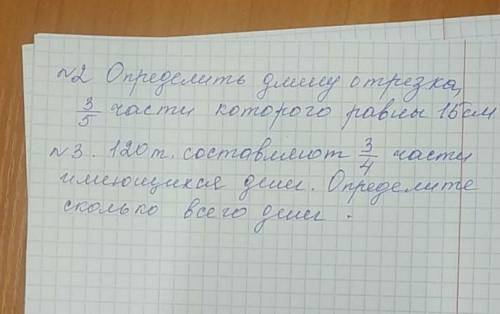 №2 Определить длину отрезка,
3/5 части которого равны 15см
№3. 120т. составляют 3/4 части
имеющихся дени. Определите
сколько всего дени.